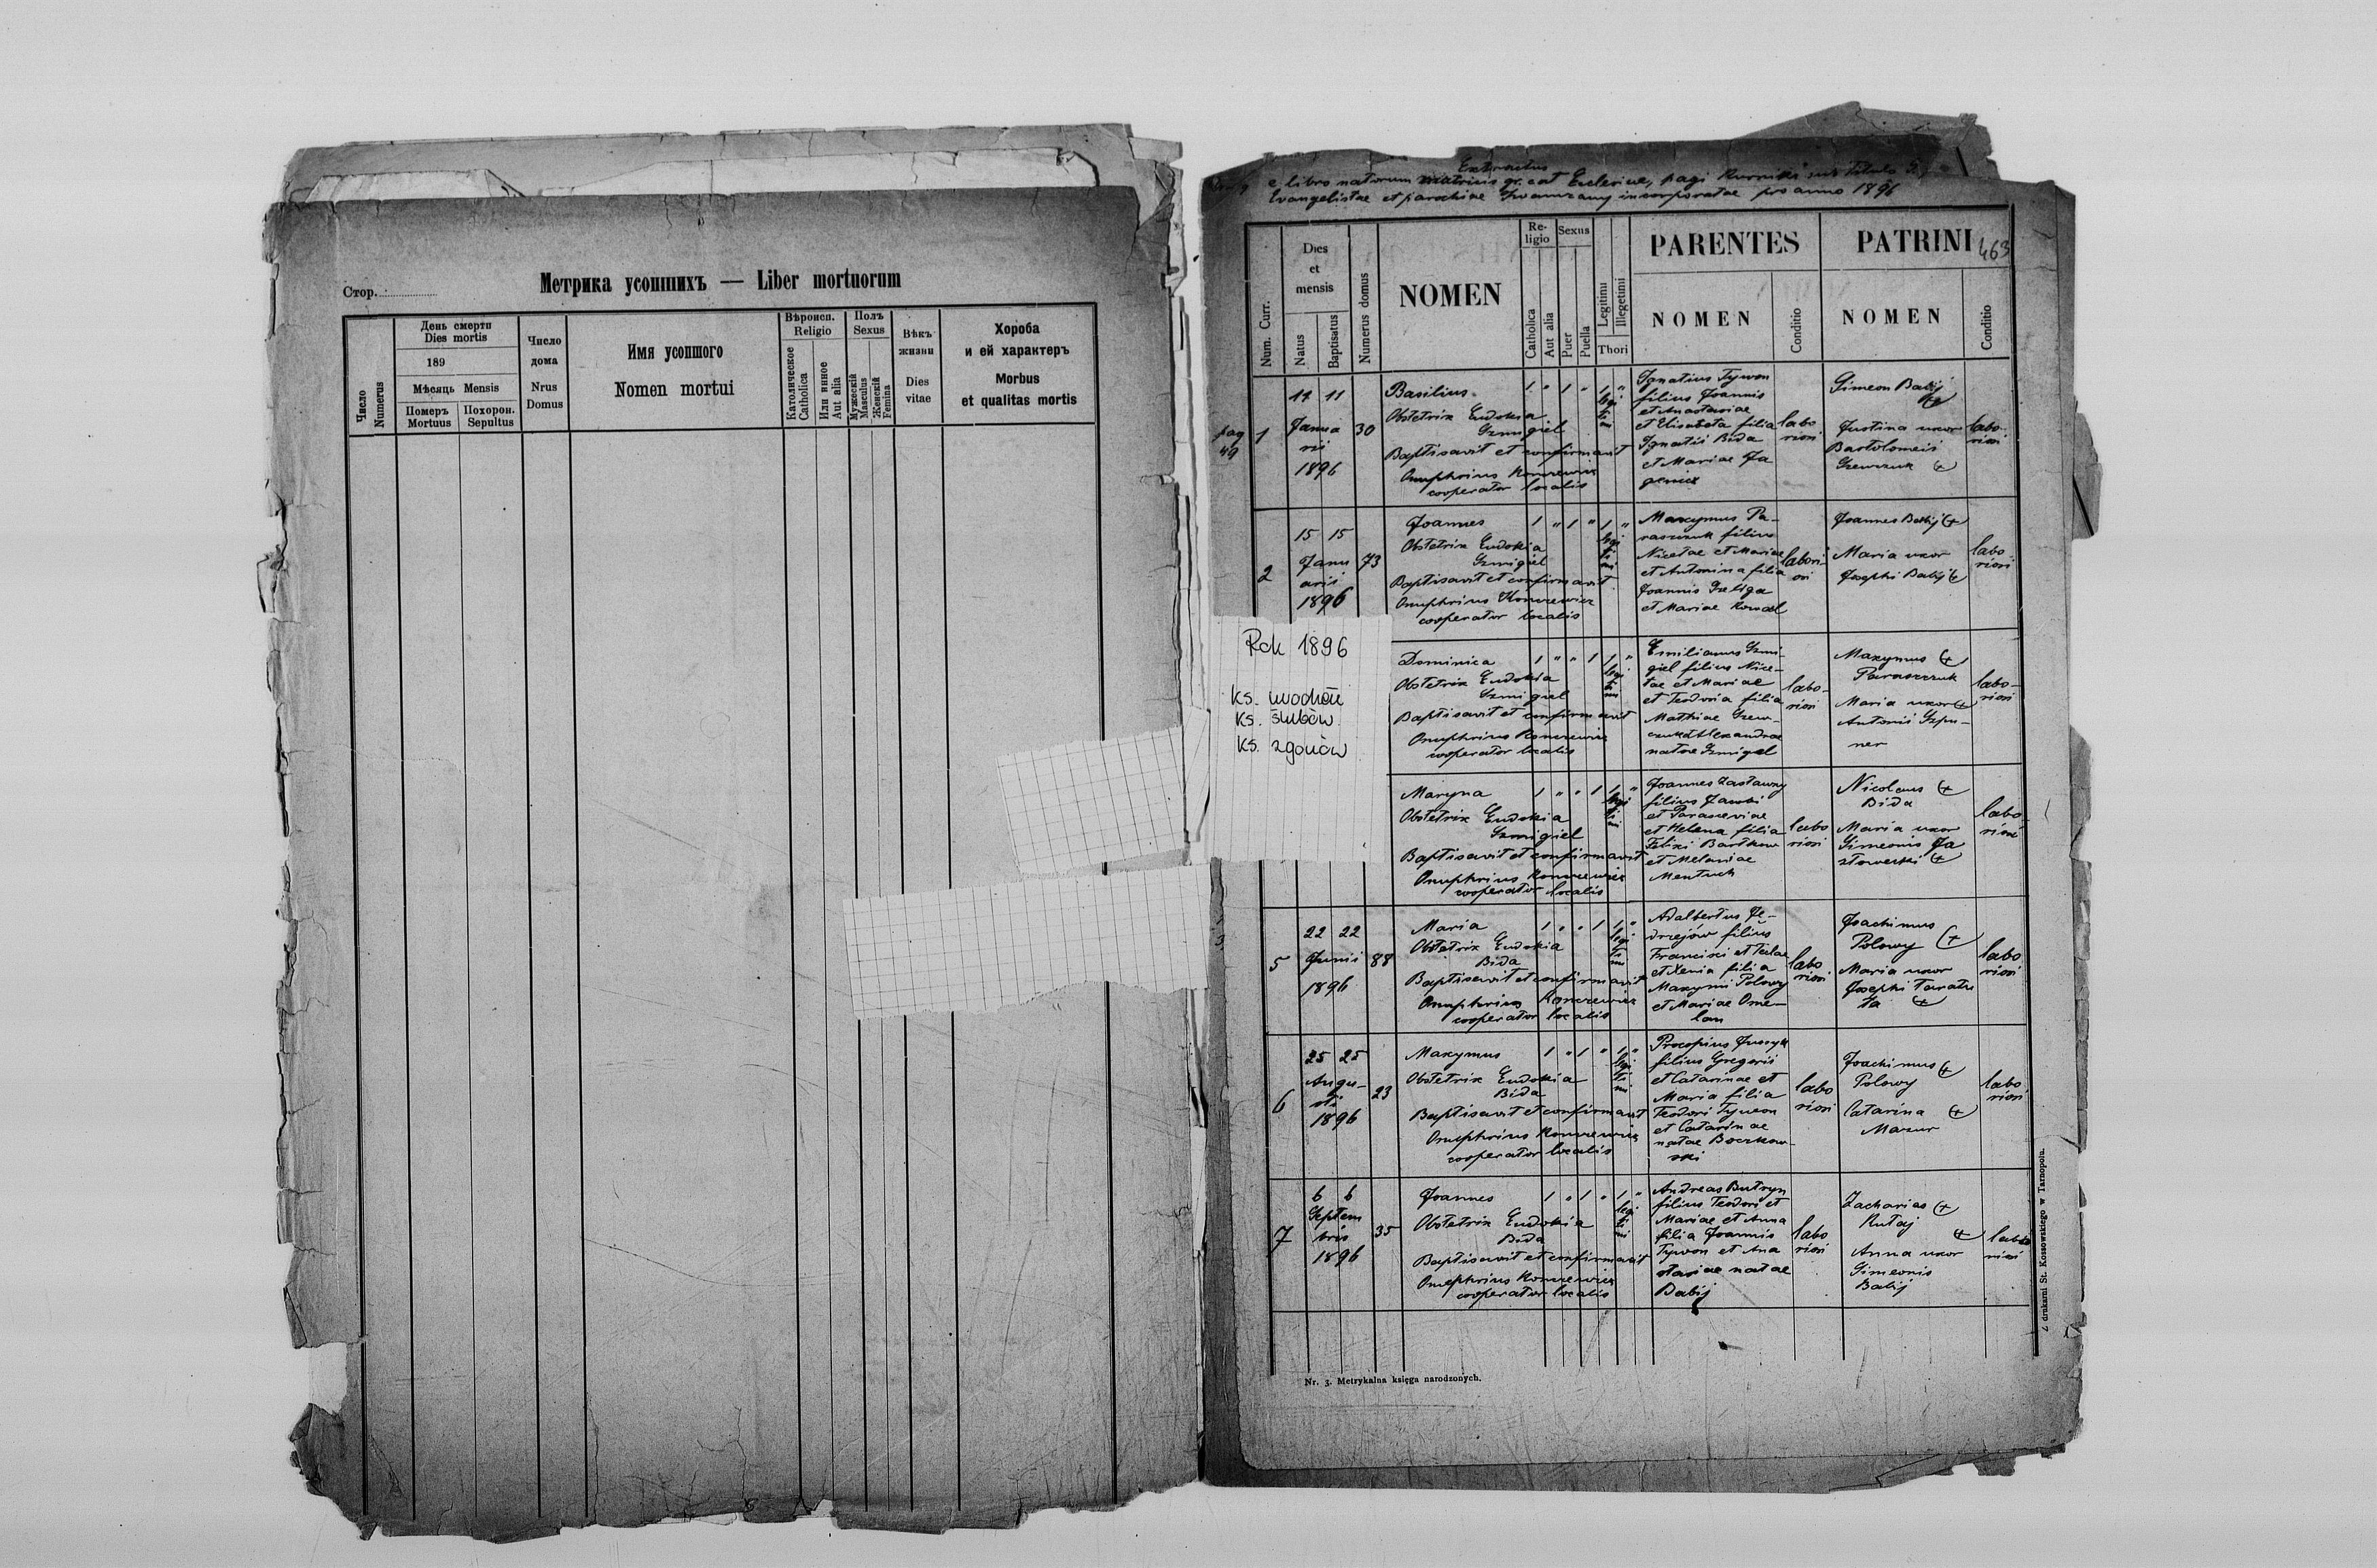 Стор.
Метрика усопшихъ — Liber mortuorum
Число
Numerus
День смерти
Dies mortis
189
Мѣсяць Mensis
Померъ
Mortuus
Похорон.
Sepultus
Число
дома
Nrus
Domus
Имя усопшого
Nomen mortui
Вѣроисп.
Religio
Католическое
Catholica
Или инное
Aut alia
Полъ
Sexus
Мужескій
Masculus
Женскій
Femina
Вѣкъ
жизни
Dies
vitae
Хороба
и ей характеръ
Morbus
et qualitas mortis
Rok 1896
Ks. urodzeń
Ks. ślubów
Ks. zgonów
Extractus
e libro natorum matricis gr. cat Ecclesiae, pagi Kurniki sub titulo
Evangelistae et parochiae Iwanczany incorporatae pro anno 1896
463
Num. Curr.
Dies
et
mensis
Natus
Baptisatus
Numerus domus
NOMEN
Re-
ligio
Catholica
Aut alia
Sexus
Puer
Puella
Legitimi
Illegetimi
Thori
PARENTES
NOMEN
Conditio
PATRINI
NOMEN
Conditio
pag
49
1
11 11
Janua
rii
1896
30
Basilius
Obstetrix Eudokia
Szmigiel
Baptisavit et confirmavit
Onuphrius
cooperator localis
1 " 1 " 1 "
legi
ti
mi
Ignatius Tywon
filius Joannis
et Anastasiae
et Elisabeta filia
Ignatii Bida
et Mariae Ja
labo
riosi
Simeon Babij
Justina uxor
Bartolomeii
Szewczuk +
labo-
riosi
2
15 15
Janu
arii
1896
73
Joannes
Obstetrix Eudokia
Szmigiel
Baptisavit et confirmavit
Onuphrius
cooperator localis
1 " 1 " 1 "
legi
ti
mi
Maxymus Pa-
raszczuk filius
Nicetae et Mariae
et Antonina filia
Joannis Szeliga
et Mariae Kowal
labori
osi
Joannes Babij +
Maria uxor
Josephi Babij +
labo-
riosi
Dominica
Obstetrix Eudokia
Szmigiel
Baptisavit et confirmavit
Onuphrius
cooperator localis
1 " " 1 1 "
legi
ti
mi
Emilianus Szmi-
giel filius Nice-
tae et Mariae
et Teodoria filia
Mathiae Szew-
czuk et Alexandrae
natae Szmigel
labo-
riosi
Maxymus +
Paraszczuk
Maria uxor +
Antonii Szpu-
ner
labo-
riosi
Maryna
Obstetrix Eudokia
Szmigiel
Baptisavit et confirmavit
Onuphrius
cooperator localis
1 " " 1 1 "
legi
ti
mi
Joannes Zastawny
filius
et Parasceviae
et Helena filia
Felixi Bartkow
et Melaniae
Mentuch
labo
riosi
Nicolaus +
Bida
Maria uxor
Simeonis Ja
złowecki +
labo-
riosi
5
22 22
Junii
1896
88
Maria
Obstetrix Eudokia
Bida
Baptisavit et confirmavit
Onuphrius
cooperator localis
1 " " 1 1 "
legi
ti
mi
Adalbertus Ję-
drzejów filius
Francisci et Teclae
et Xenia filia
Maxymi Polowy
et Mariae Ome-
lan
labo
riosi
Joachimus
Polowy +
Maria uxor
Josephi Taratu
ta +
labo
riosi
6
25 25
Augu-
sti
1896
23
Maxymus
Obstetrix Eudokia
Bida
Baptisavit et confirmavit
Onuphrius
cooperator localis
1 " 1 " 1 "
legi
ti
mi
Procopius
filius Gregorii
et Catarinae et
Maria filia
Teodori Tywon
et Catarinae
natae Boczkow-
ski
labo
riosi
Joachimus +
Polowy
Catarina +
Mazur
labo
riosi
7
6 6
Septem
bris
1896
35
Joannes
Obstetrix Eudokia
Bida
Baptisavit et confirmavit
Onuphrius
cooperator localis
1 " 1 " 1 "
legi
ti
mi
Andreas Butryn
filius Teodori et
Mariae et Anna
filia Joannis
Tywon et Ana
stasiae natae
Babij
labo
riosi
Zacharias +
Kutaj
+
Anna uxor
Simeonis
Babij
labo
riosi
Nr. 3. Metrykalna księga narodzonych.
Z drukarni St. Kossowskiego w Tarnopolu.